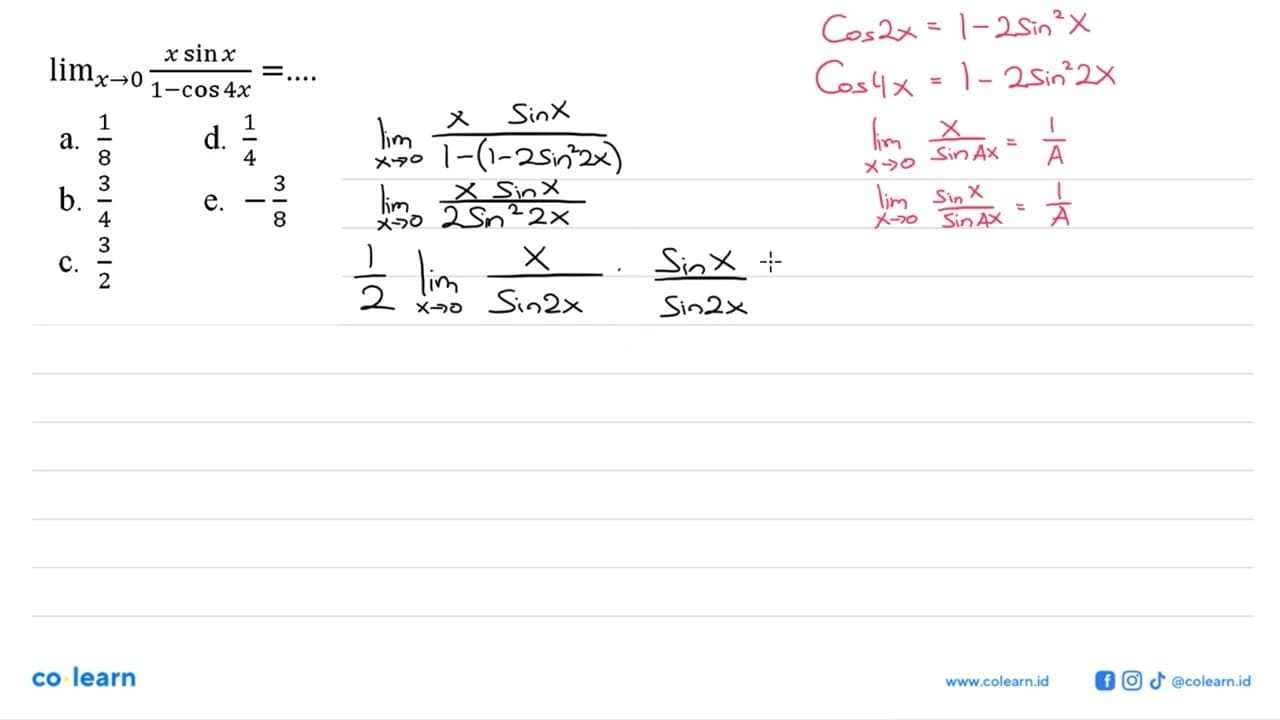 lim x→0 x sin x / 1−cos 4x =....
a. 1/8 d. 1/4
b. 3/4 e. −3/8
c. 3/2
lim x→0 x Sin x / 1−(1−2Sin²2x)
lim x→0 x Sin x / 2Sin²2x
1/2 lim x→0 x / Sin2x . Sin x / Sin2x
Cos2x = 1−2Sin²x
Cos4x = 1−2Sin²2x
lim x→0 x / Sin Ax = 1/A
lim x→0 Sin x / Sin Ax = 1/A
co learn
www.colearn.id
@colearn.id